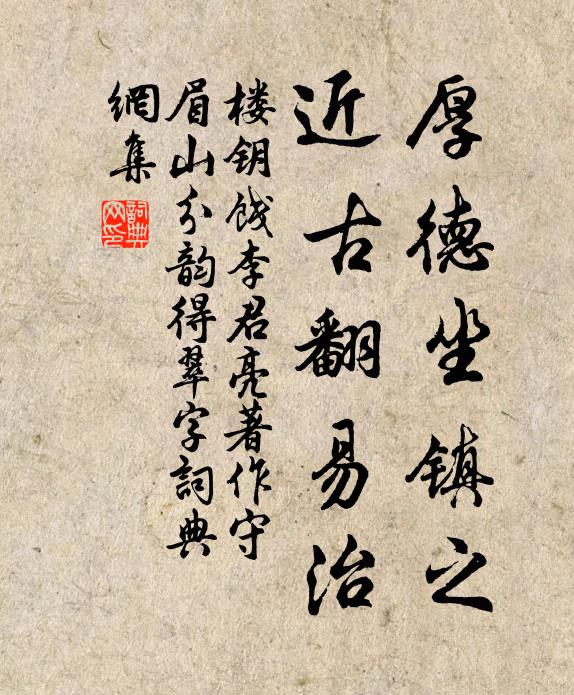 厚德坐镇之
近古翻易治
楼钥饯李君亮著作守
眉山分韵得翠字詞典
網集
詞典網印